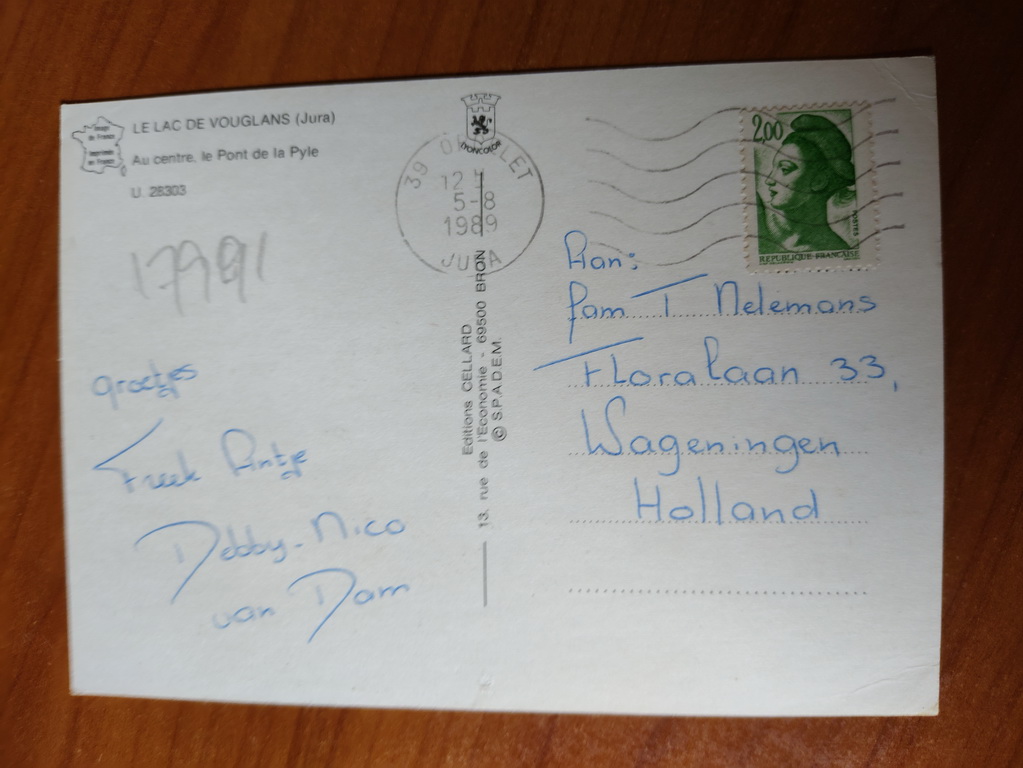 Image
de France
Imprimée
en France
LE LAC DE VOUGLANS (Jura)
Au centre, le Pont de la Pyle
U. 28303
17991
groetjes
Freek Rintje
Debby-Nico
van Dam
39 O LET
12 H
5-8
1989
JURA
Editions CELLARD
13, rue de l'Economie - 69500 BRON
© S.P.A.D.E.M.
2,00
POSTES
REPUBLIQUE FRANCAISE
Aan:
fam T Nelemans
Floralaan 33,
Wageningen
Holland